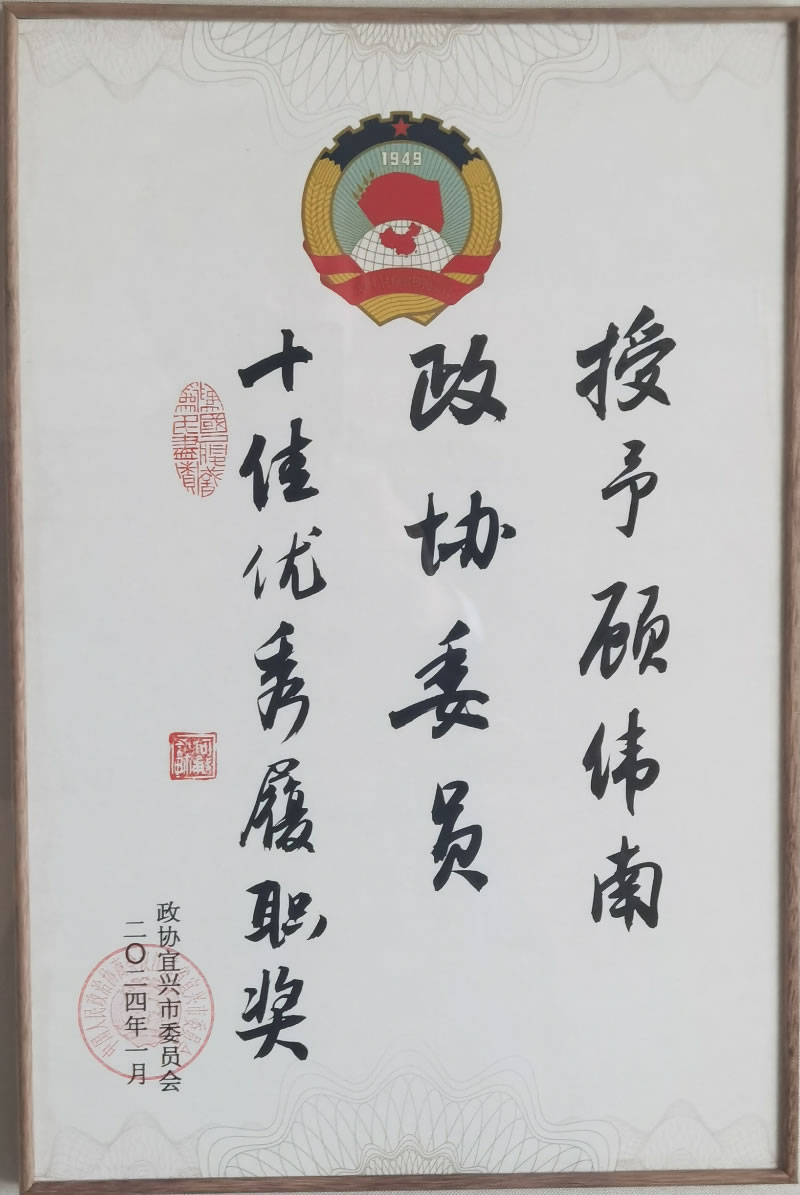 1949
授予顾伟南
政协委员
十佳优秀履职奖
政协宜兴市委员会
二〇二四年一月